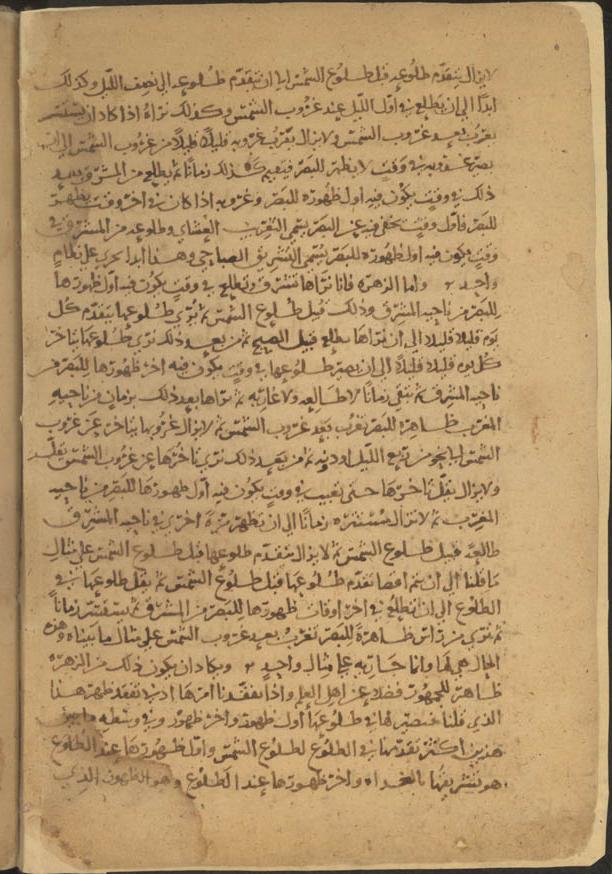 لا يزال يتقدم طلوعه قبل طلوع الشمس الى ان يتقدم طلوعه الى نصف الليل وكذلك
ابدا الى ان يطلع في اول الليل عند غروب الشمس وكذلك نراه اذا كاد ان يستتر
يغرب بعد غروب الشمس ولا يزال يقرب غروبه قليلا قليلا من غروب الشمس الى ان
يصير غروبه في وقت لا يظهر للبصر فيقيم كذلك زمانا ثم يطلع من المشرق بعد
ذلك في وقت يكون فيه اول ظهوره للبصر وغروبه اذا كان في اخر وقت يظهر
للبصر فاول وقت يخفى فيه عن البصر يسمى التغريب العشائي وطلوعه من المشرق في
وقت يكون فيه اول ظهوره للبصر يسمى التشريق الصباحي وهذا ابدا يجري على نظام
واحد واما الزهره فانا نراها تشرق وتطلع في وقت يكون فيه اول ظهورها
للبصر من ناحيه المشرق وذلك قبل طلوع الشمس ثم نرى طلوعها يتقدم كل
يوم قليلا قليلا الى ان نراها تطلع قبل الصبح ثم من بعد ذلك نرى طلوعها يتاخر
كل يوم قليلا قليلا الى ان يصير طلوعها في وقت يكون فيه اخر ظهورها للبصر من
ناحيه المشرق ثم تبقى زمانا لا طالعه ولا غاربه ثم نراها بعد ذلك بزمان من ناحيه
المغرب ظاهره للبصر تغرب بعد غروب الشمس ثم لا يزال غروبها يتاخر عن غروب
الشمس الى نحو من ربع الليل او دونه ثم من بعد ذلك نرى تاخرها عن غروب الشمس يقل
ولا يزال يقل تاخرها حتى تغيب في وقت يكون فيه اول ظهورها للبصر من ناحيه
المغرب ثم لا تزال مستتره زمانا الى ان تظهر مرة اخرى في ناحيه المشرق
طالعة قبل طلوع الشمس ثم لا يزال يتقدم طلوعها قبل طلوع الشمس على مثال
ما قلنا الى ان يتم اقصا تقدم طلوعها قبل طلوع الشمس ثم يقل طلوعها في
الطلوع الى ان تطلع في اخر اوقات ظهورها للبصر من المشرق ثم تستتر زمانا
ثم نرى ظاهرة للبصر تغرب بعد غروب الشمس على مثال ما بيناه وهذه
الحال هي لها دائما جاريه على مثال واحد ويكاد ان يكون ذلك من الزهره
ظاهرا للجمهور فضلا عن اهل العلم واذا تفقدنا امرها ادنى تفقد ظهر هذا
الذي قلنا فنصير لها في طلوعها اول ظهور واخر ظهور وفي وسط ما بين
هذين اكثر تقدمها في الطلوع لطلوع الشمس واول ظهورها عند الطلوع
هو تشريقها بالغداه واخر ظهورها عند الطلوع وهو الظهور الذي